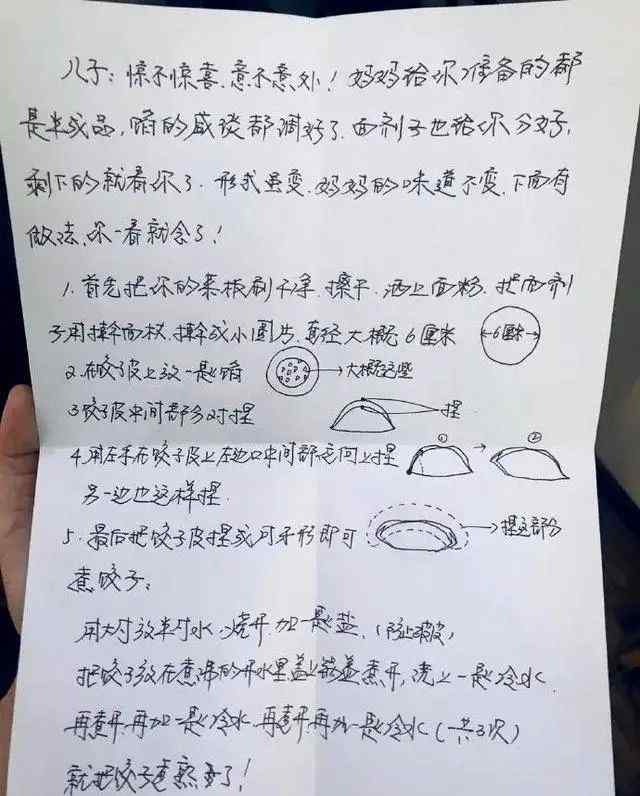 儿子：惊不惊喜、意不意外！妈妈给你准备的都
是半成品，馅的咸淡都调好了、面剂子也给你分好，
剩下的就看你了．形式虽变、妈妈的味道不变、下面有
做法、你一看就会了！
1、首先把你的菜板刷干净、擦干、洒上面粉、把面剂
子用擀面杖、擀成小圆片、直径大概6厘米
6厘米
2、在饺子皮上放一匙馅
大概这些
3、饺子皮中间部分对捏
捏
4、用左手在饺子皮上左边口中间部分向上捏
① ②
另一边也这样捏．
5、最后把饺子皮捏成月牙形即可
捏这部分
煮饺子：
用大勺放半勺水、烧开加一匙盐、（防止破皮）
把饺子放在煮沸的开水里盖上锅盖煮开，浇上一匙冷水．
再煮开、再加一匙冷水、再煮开、再加一匙冷水（一共3次）
就把饺子煮熟了！